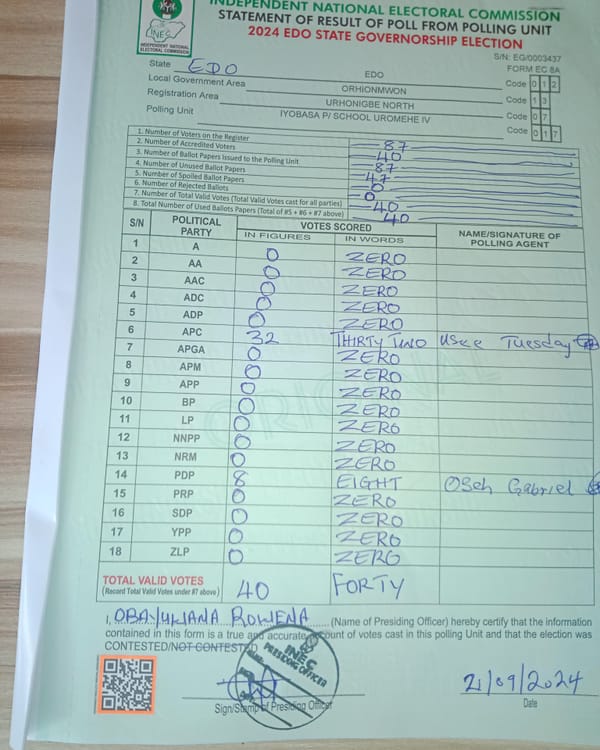 INDEPENDENT NATIONAL ELECTORAL COMMISSION
STATEMENT OF RESULT OF POLL FROM POLLING UNIT
2024 EDO STATE GOVERNORSHIP ELECTION
INEC
INDEPENDENT NATIONAL ELECTORAL COMMISSION
S/N: EG/0003437
FORM EC 8A
State EDO EDO Code 0 1 2
Local Government Area ORHIONMWON Code 1 3
Registration Area URHONIGBE NORTH Code 0 7
Polling Unit IYOBASA P/ SCHOOL UROMEHE IV Code 0 1 7
1. Number of Voters on the Register 87
2. Number of Accredited Voters 40
3. Number of Ballot Papers Issued to the Polling Unit 87
4. Number of Unused Ballot Papers 47
5. Number of Spoiled Ballot Papers 0
6. Number of Rejected Ballots 0
7. Number of Total Valid Votes (Total Valid Votes cast for all parties) 40
8. Total Number of Used Ballots Papers (Total of #5 + #6 + #7 above) 40
S/N POLITICAL PARTY VOTES SCORED NAME/SIGNATURE OF POLLING AGENT
IN FIGURES IN WORDS
1 A 0 ZERO
2 AA 0 ZERO
3 AAC 0 ZERO
4 ADC 0 ZERO
5 ADP 0 ZERO
6 APC 32 THIRTY TWO Tuesday
7 APGA 0 ZERO
8 APM 0 ZERO
9 APP 0 ZERO
10 BP 0 ZERO
11 LP 0 ZERO
12 NNPP 0 ZERO
13 NRM 0 ZERO
14 PDP 8 EIGHT Oseh Gabriel
15 PRP 0 ZERO
16 SDP 0 ZERO
17 YPP 0 ZERO
18 ZLP 0 ZERO
TOTAL VALID VOTES 40 FORTY
(Record Total Valid Votes under #7 above)
I, ROWENA (Name of Presiding Officer) hereby certify that the information
contained in this form is a true and accurate account of votes cast in this polling Unit and that the election was
CONTESTED/NOT CONTESTED
INEC
PRESIDING OFFICER
21/09/2024
Sign/Stamp of Presiding Officer Date